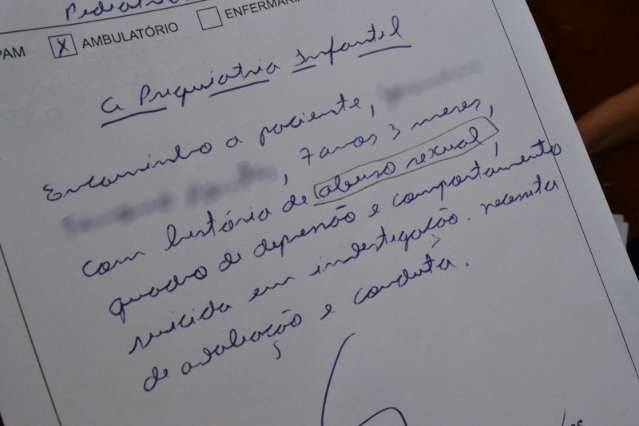 Pediatri
PAM X AMBULATÓRIO ENFERMARI
a Psiquiatria Infantil
Encaminho a paciente,
, 7 anos 3 meses,
com história de abuso sexual,
quadro de depressão e comportamento
suicida em investigação. necessita
de avaliação e conduta.